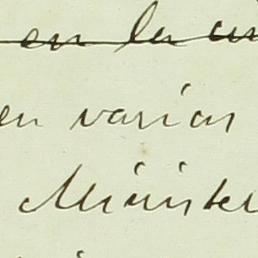 en la
en varios
Minister